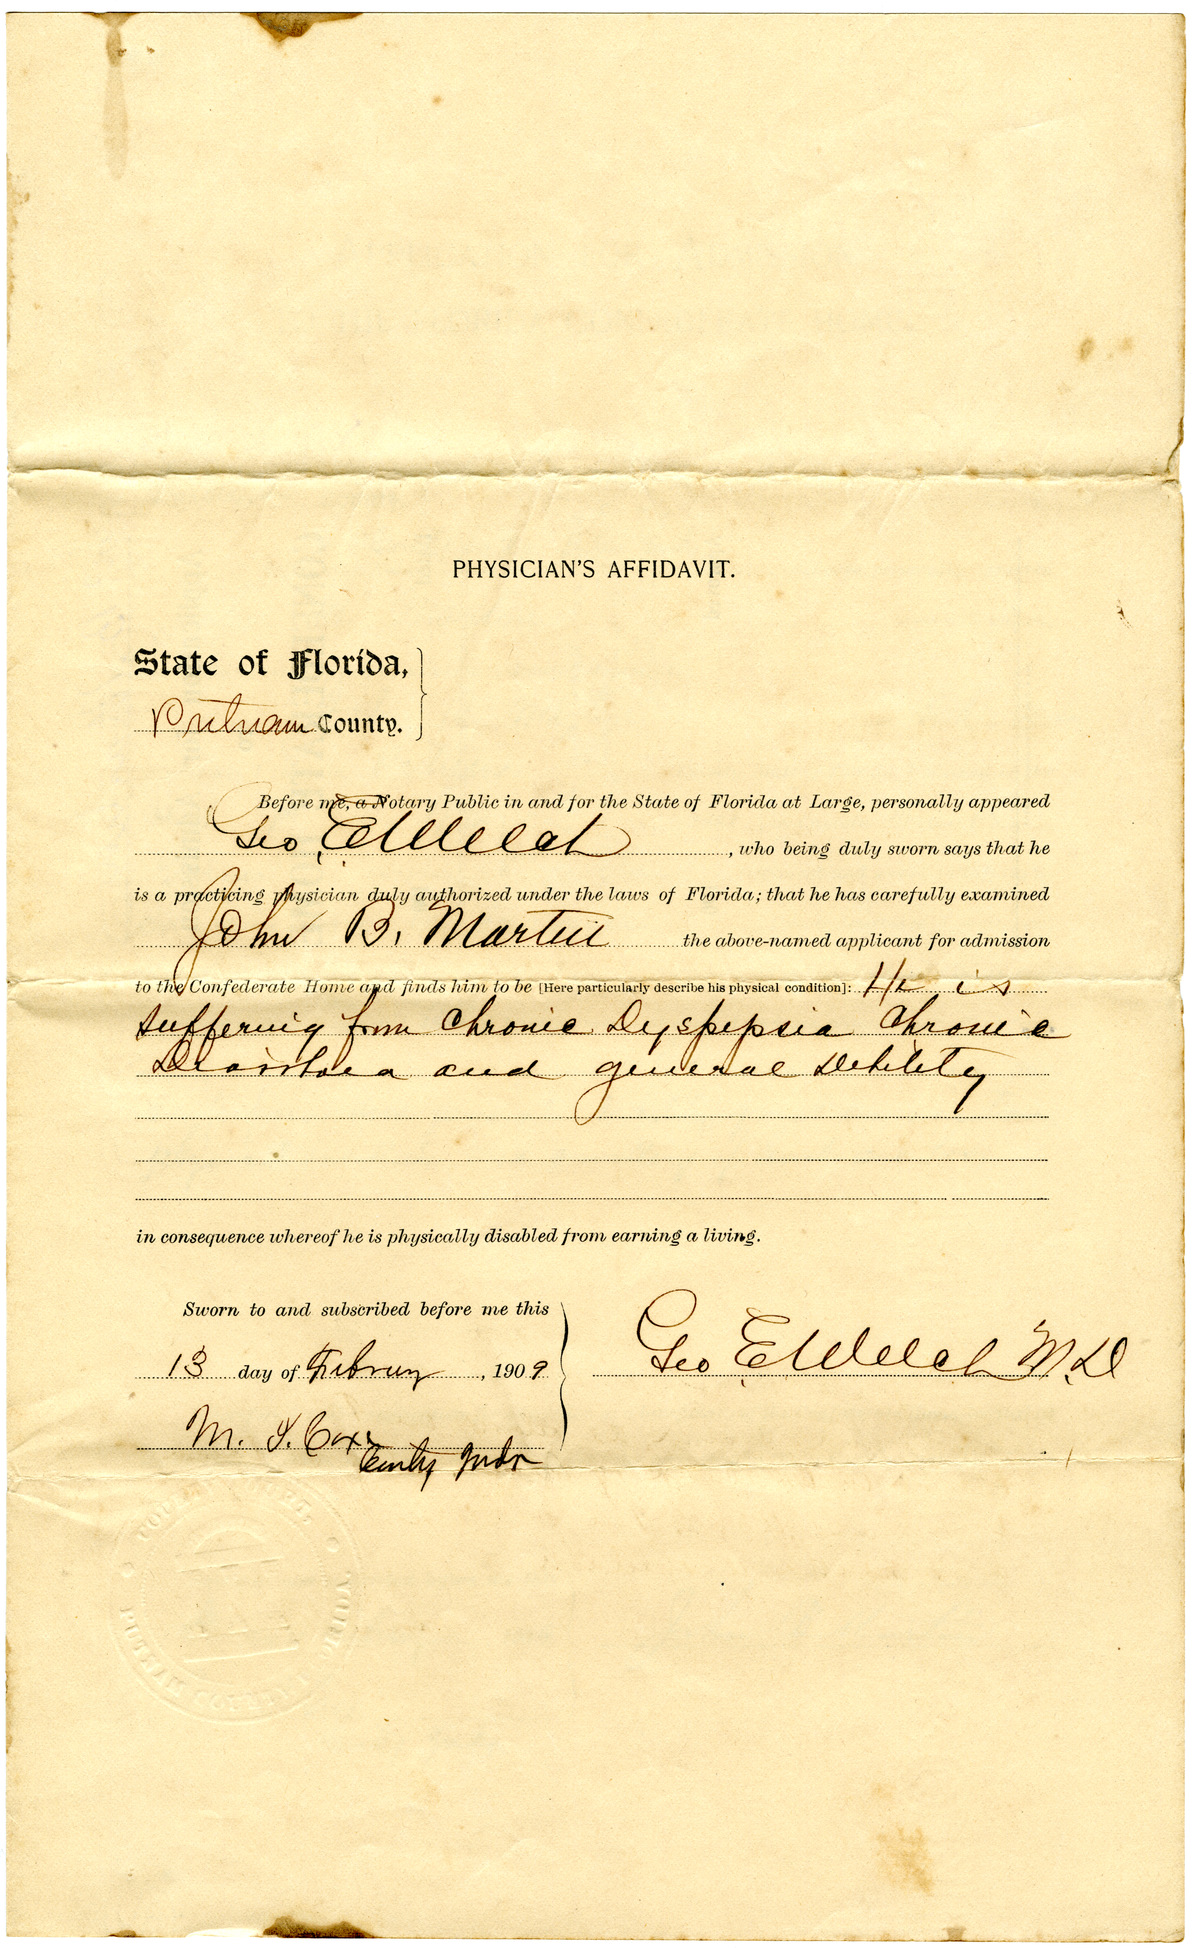 PHYSICIAN'S AFFIDAVIT.
State of Florida,
Putnam County.
Before me, a Notary Public in and for the State of Florida at Large, personally appeared
Geo. E Welch, who being duly sworn says that he
is a practicing physician duly authorized under the laws of Florida; that he has carefully examined
John B. Martin the above-named applicant for admission
to the Confederate Home and finds him to be [Here particularly describe his physical condition]: He is
suffering from Chronic Dyspepsia Chronic
and general Debility
in consequence whereof he is physically disabled from earning a living.
Sworn to and subscribed before me this
13 day of , 1909
Geo E Welch M.D
M. I. Cox
COUNTY
PUTNAM COUNTY